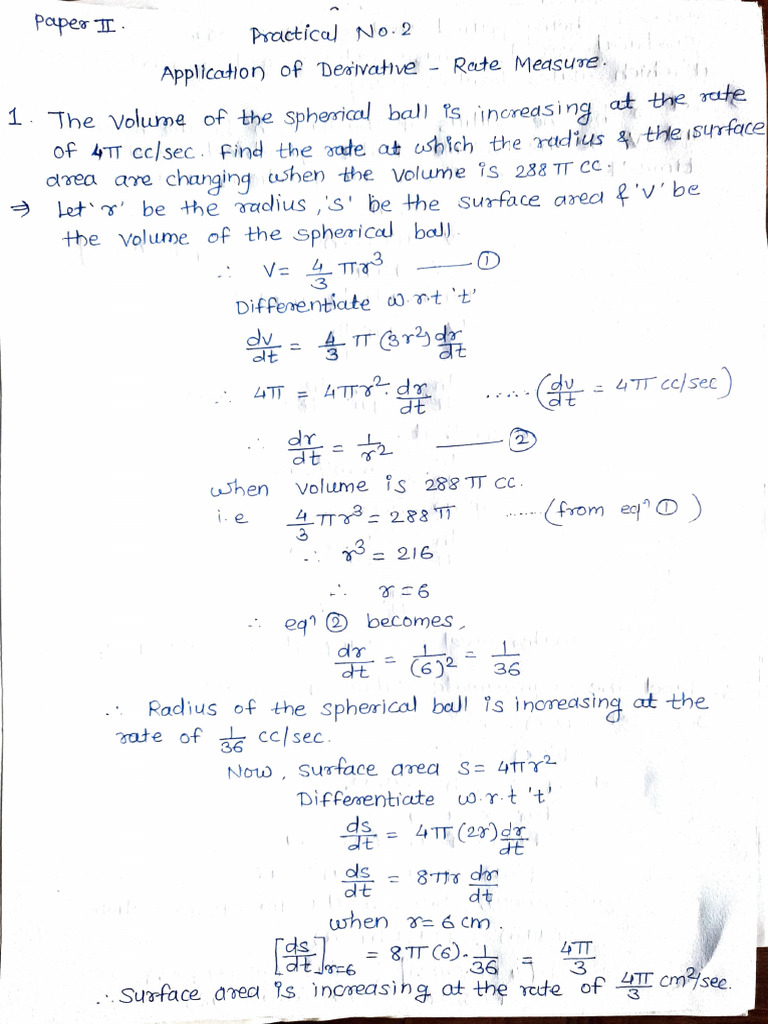 Paper II.
Practical No. 2
Application of Derivative - Rate Measure.
1. The volume of the spherical ball is increasing at the rate
of 4π cc/sec. Find the rate at which the radius & the surface
area are changing when the volume is 288π cc.
⇒ Let 'r' be the radius, 's' be the surface area & 'v' be
the volume of the spherical ball.
∴ V = 4/3 πr³ —— ①
Differentiate w.r.t 't'
dv/dt = 4/3 π (3r²) dr/dt
∴ 4π = 4πr². dr/dt ..... (dv/dt = 4π cc/sec)
∴ dr/dt = 1/r² —— ②
when volume is 288π cc.
i.e 4/3 πr³ = 288π ...... (from eqⁿ ①)
∴ r³ = 216
∴ r = 6
∴ eqⁿ ② becomes,
dr/dt = 1/(6)² = 1/36
∴ Radius of the spherical ball is increasing at the
rate of 1/36 cc/sec.
Now, surface area s = 4πr²
Differentiate w.r.t 't'
ds/dt = 4π (2r) dr/dt
ds/dt = 8πr dr/dt
when r = 6 cm.
[ds/dt]r=6 = 8π(6). 1/36 = 4π/3
∴ Surface area is increasing at the rate of 4π/3 cm²/sec.